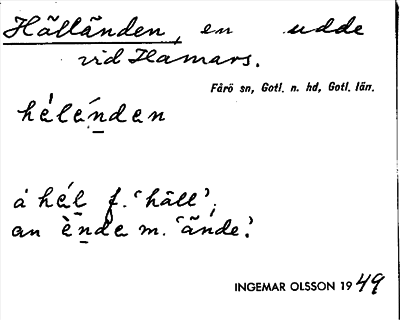 Hälländen, en udde
vid Hamars.
Fårö sn, Gotl. n. hd, Gotl. län.
hèléṉden
á hél f. 'häll';
an èṉde m. 'ände'.
INGEMAR OLSSON 1949